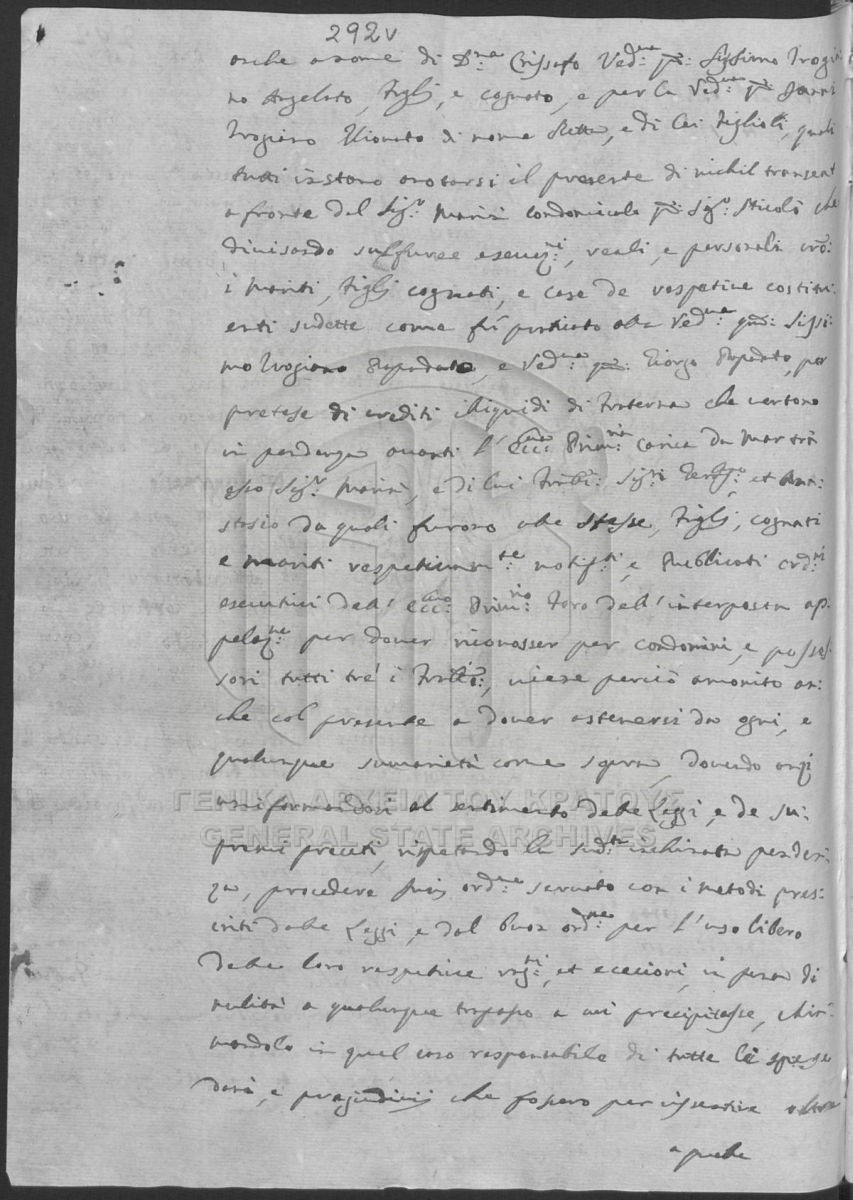 292v
anche a nome di D.na Crissafo Ved.va q.m Sissimo Trogia
no Angelato, figlj, e cognato, e per la Ved.va q.m
Trogiano di nome Retta, e di lei figlioli, quali
tutti instano anotarsi il presente di nichil transeat
a fronte del Sig.r Marin Condomicola q.m Sig.r Nicolò che
divisando suffuree esecuz.ni, reali, e personali cro:
i mariti, figlj cognati, e case de respetive costitu:
enti sudette come fù praticato alla Ved.va q.m Sissi:
mo Trogiano, e Ved.va q.m Giorgo, per
pretese di crediti iliquidi di fraterna che vertono
in pendenza avanti l'Ecc.ma Prim.ria Carica da
esso Sig.r Marin, e di lui Frēlli: Sig.ri, et Ana:
stasio da quali furono alle stesse, figlj, cognati
e mariti respetivam.te notif.ti, e publicati ord.ni
esecutivi dell'Ecc.mo Prim.rio Foro dell'interposta ap:
pelaz.ne per dover riconosser per condomini, e posses:
sori tutti trè i Frēlli:, viene perciò amonito an:
che col presente a dover astenersi da ogni, e
qualunque sumarietà come sopra, dovendo anzi
uniformandosi al sentimento delle Leggi, e de su:
premi precetti, rispetando la sud.ta inchinata penden:
za, procedere Juris ord.ne servato con i metodi pres:
criti dalle Leggi, e dal buon ord.ne per l'uso libero
delle loro respetive rag.ni, et ececioni, in pena di
nulità a qualunque trapasso a cui precipitasse, chia:
mandolo in quel caso responsabile di tutte le spese
dani, e pregiudicij che fossero per risentire oltra
a quelle
ΓΕΝΙΚΑ ΑΡΧΕΙΑ ΤΟΥ ΚΡΑΤΟΥΣ
GENERAL STATE ARCHIVES